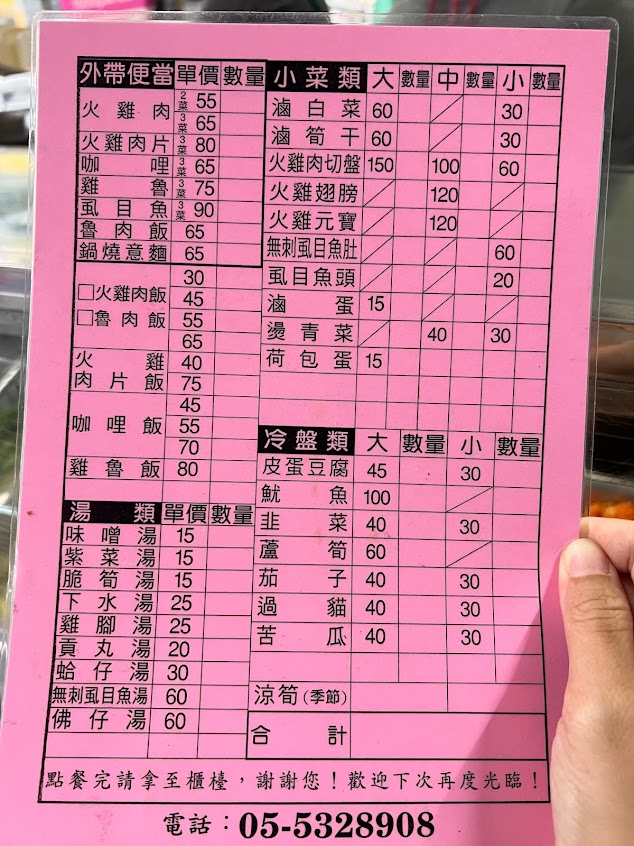 外帶便當 單價 數量
火雞肉 2菜 55
3菜 65
火雞肉片 3菜 80
咖哩 3菜 65
雞魯 3菜 75
虱目魚 3菜 90
魯肉飯 65
鍋燒意麵 65
□火雞肉飯 □魯肉飯 30
45
55
65
火雞肉片飯 40
75
咖哩飯 45
55
70
雞魯飯 80
湯類 單價 數量
味噌湯 15
紫菜湯 15
脆筍湯 15
下水湯 25
雞腳湯 25
貢丸湯 20
蛤仔湯 30
無刺虱目魚湯 60
佛仔湯 60
小菜類 大 數量 中 數量 小 數量
滷白菜 60 / 30
滷筍干 60 / 30
火雞肉切盤 150 100 60
火雞翅膀 / 120 /
火雞元寶 / 120 /
無刺虱目魚肚 / / 60
虱目魚頭 / / 20
滷蛋 15 / /
燙青菜 / 40 30
荷包蛋 15
冷盤類 大 數量 小 數量
皮蛋豆腐 45 30
魷魚 100 /
韭菜 40 30
蘆筍 60 /
茄子 40 30
過貓 40 30
苦瓜 40 30
涼筍(季節)
合計
點餐完請拿至櫃檯，謝謝您！歡迎下次再度光臨！
電話：05-5328908